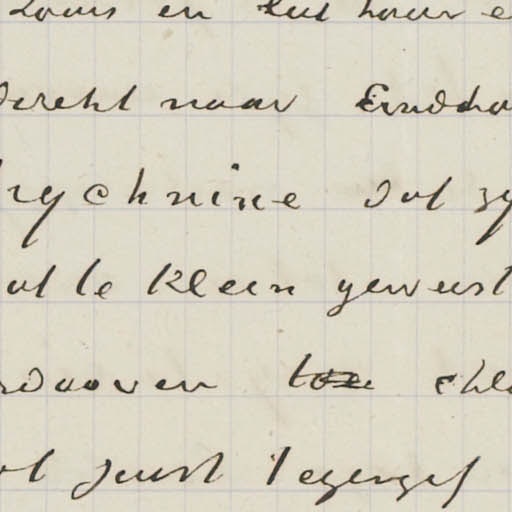 Louis en liet haar e
direkt naar Eindho
rychnine dat zy
at te klein geweest
rdaaven toe chlo
at juist tegengif